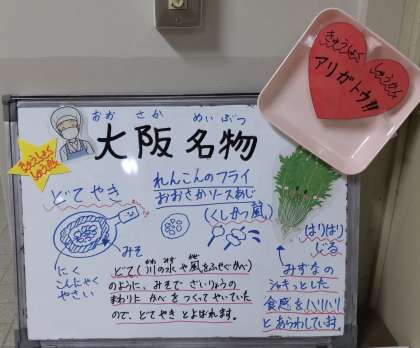 きゅうしょく
しゅうかん
アリガトウ!!
おお さか めい ぶつ
大阪名物
きゅうしょく
しゅうかん
どてやき
みそ
にく
こんにゃく
やさい
れんこんのフライ
おおさかソースあじ
(くしかつ風)
はりはり
じる
みずなの
シャキっとした
食感をハリハリ
とあらわしています。
どて(川の水や風をふせぐかべ)
のように、みそで ざいりょうの
まわりに かべを つくって やいていた
ので、どてやきとよばれます。